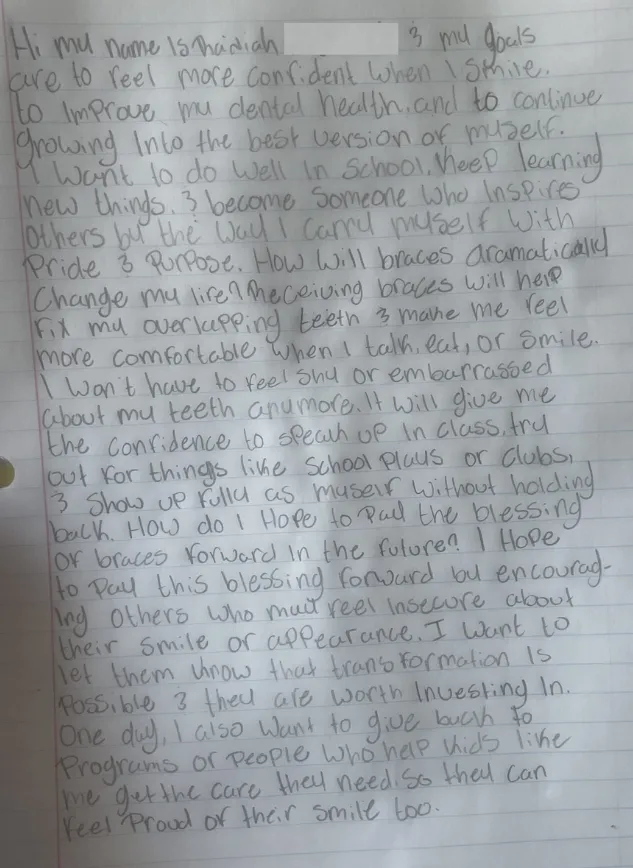 Hi my name is Thaidiah & my goals
are to feel more confident when I smile.
to improve my dental health, and to continue
growing into the best version of myself.
I want to do well in school, keep learning
new things, & become someone who inspires
others by the way I carry myself with
Pride & Purpose. How will braces dramatically
change my life? Receiving braces will help
fix my overlapping teeth & make me feel
more comfortable when I talk, eat, or smile.
I won't have to feel shy or embarrassed
about my teeth anymore. It will give me
the confidence to speak up in class, try
out for things like school plays or clubs,
& show up fully as myself without holding
back. How do I Hope to pay the blessing
of braces forward in the future? I Hope
to pay this blessing forward by encourag-
ing others who may feel insecure about
their smile or appearance. I want to
let them know that transformation is
possible & they are worth investing in.
One day, I also want to give back to
Programs or people who help kids like
me get the care they need. So they can
feel Proud of their smile too.